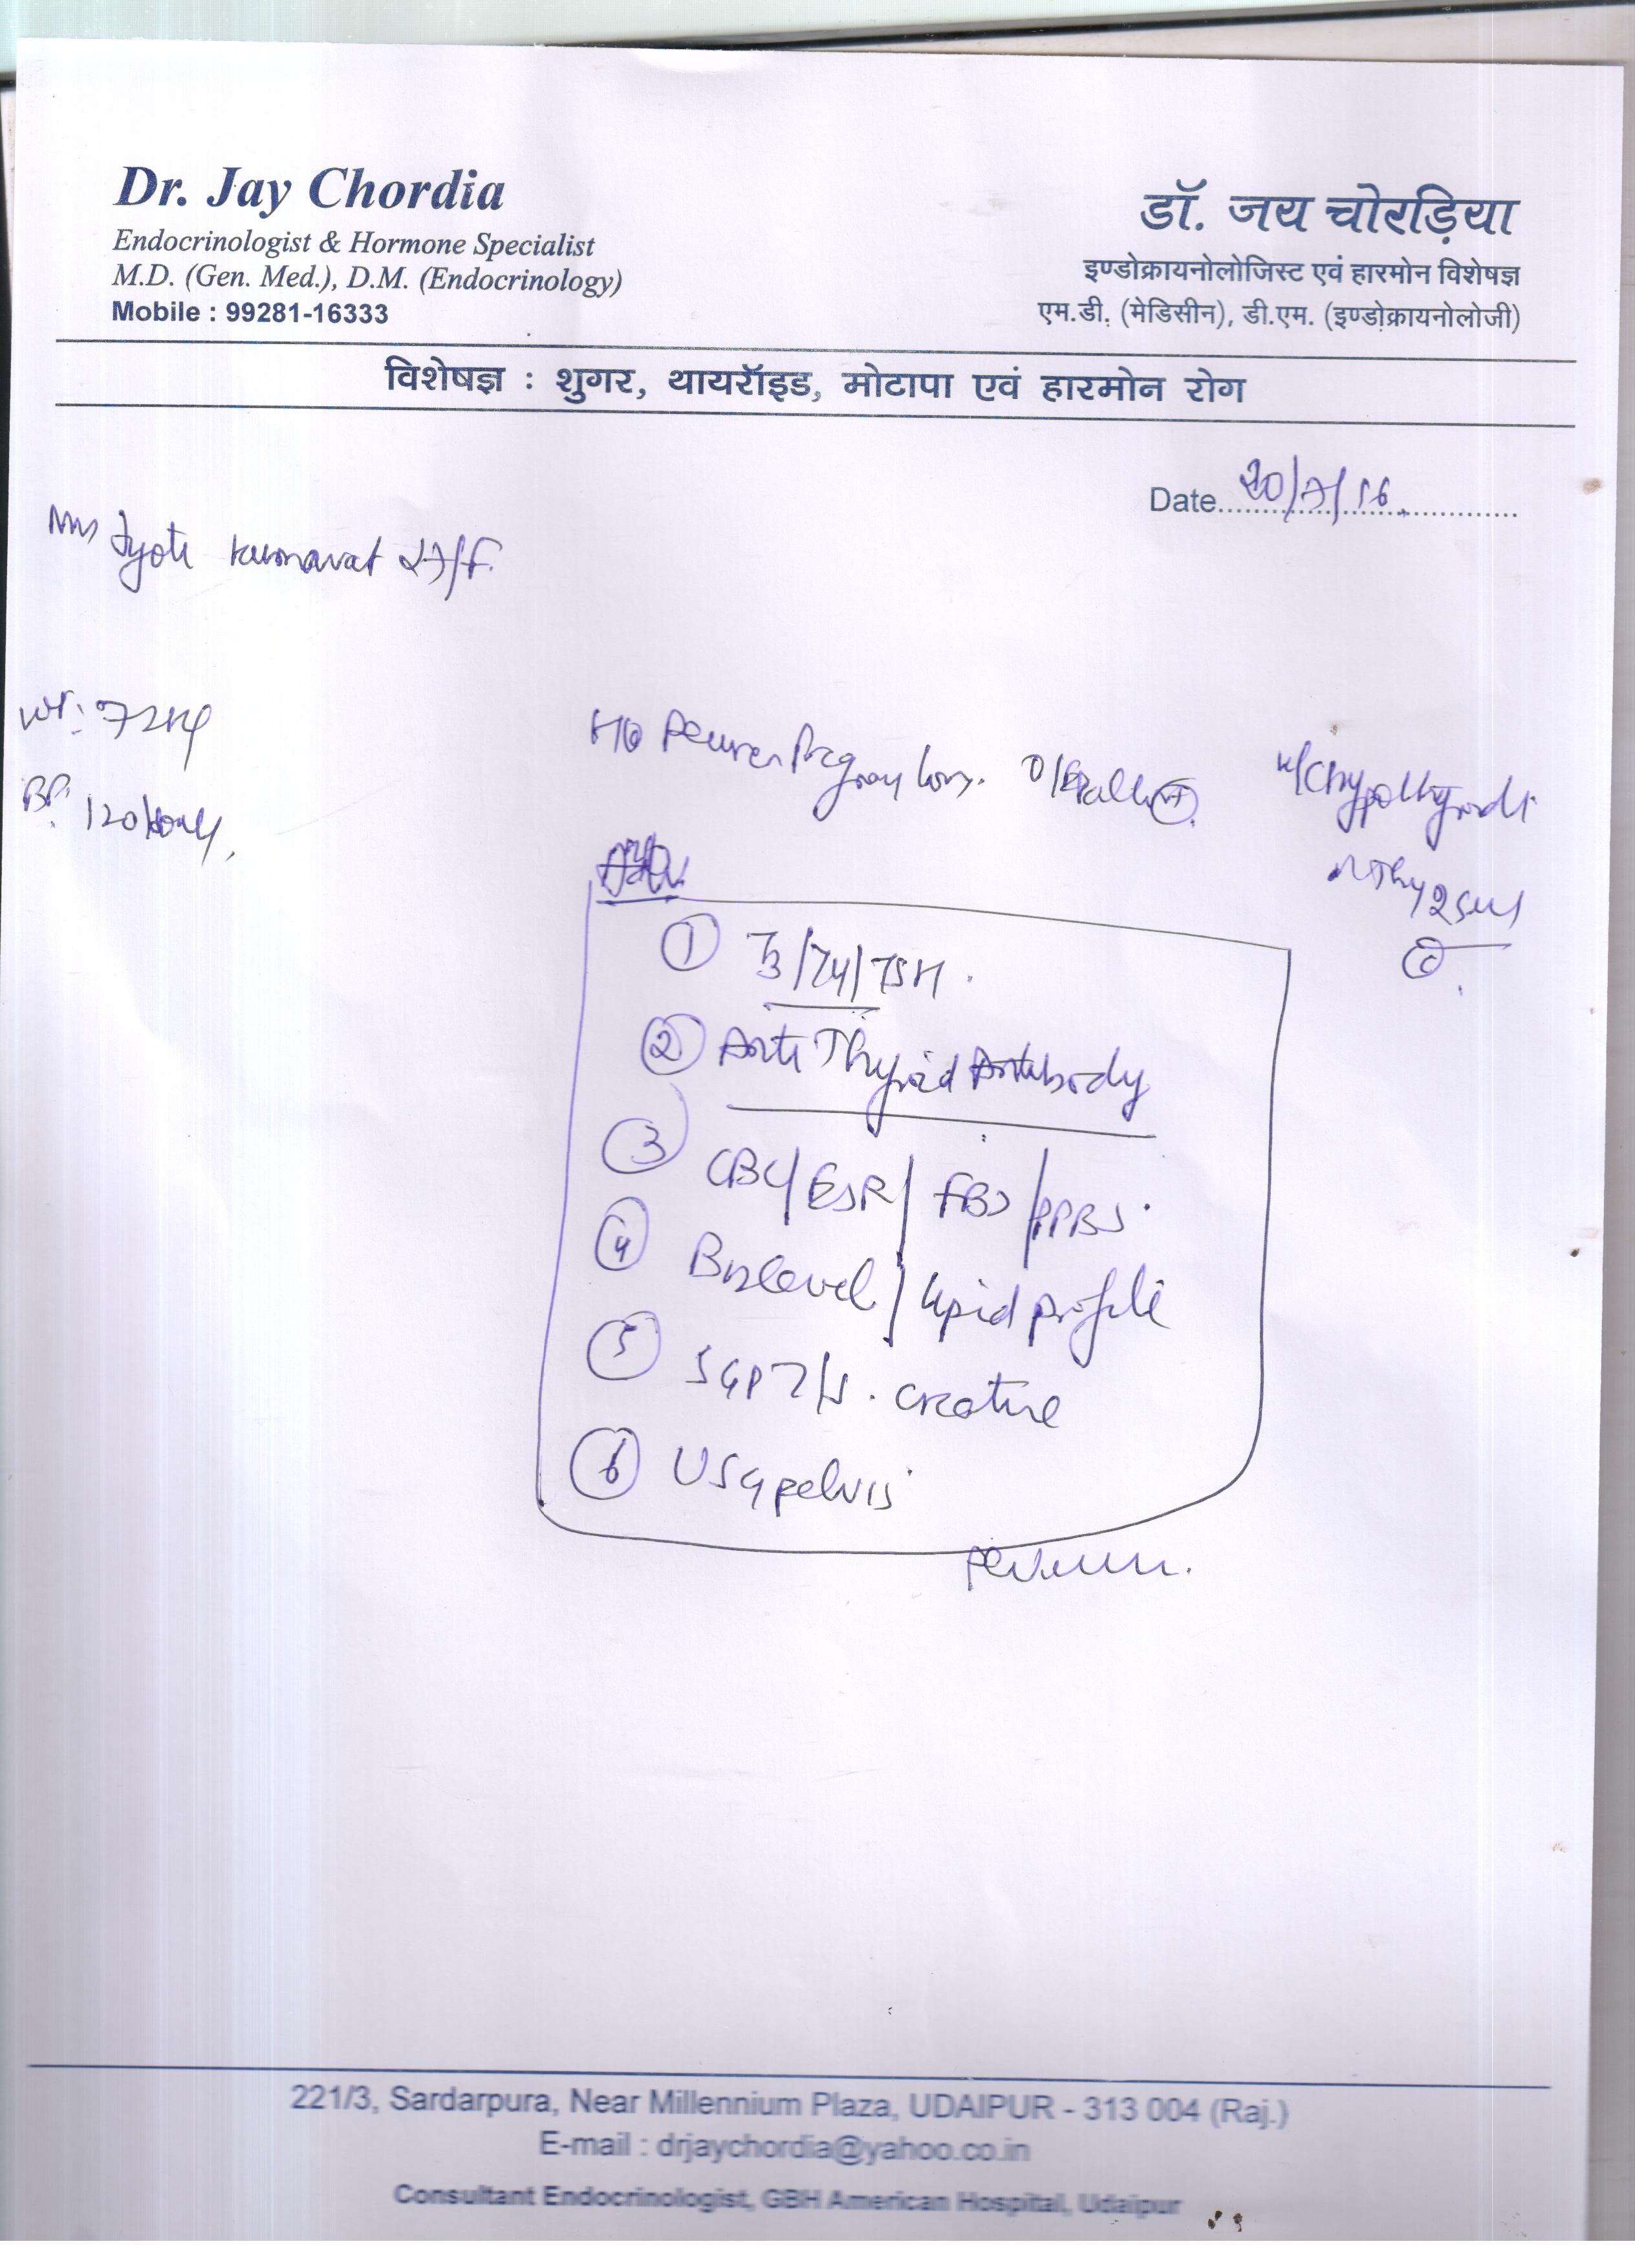 Dr. Jay Chordia
Endocrinologist & Hormone Specialist
M.D. (Gen. Med.), D.M. (Endocrinology)
Mobile : 99281-16333
डॉ. जय चोरड़िया
इण्डोक्रायनोलोजिस्ट एवं हारमोन विशेषज्ञ
एम.डी. (मेडिसीन), डी.एम. (इण्डोक्रायनोलोजी)
विशेषज्ञ : शुगर, थायरॉइड, मोटापा एवं हारमोन रोग
Date 20/7/16
Jyoti Kumavat 27/F
Wt: 72kg
BP: 120/
H/O Pregnancy loss.
① T3/T4/TSH
② Anti Thyroid Antibody
③ CBC/ESR/FBS/PPBS
④ B12 level/lipid profile
⑤ SGPT/S. Creatine
⑥ USG pelvis
221/3, Sardarpura, Near Millennium Plaza, UDAIPUR - 313 004 (Raj.)
E-mail : drjaychordia@yahoo.co.in
Consultant Endocrinologist, GBH American Hospital, Udaipur